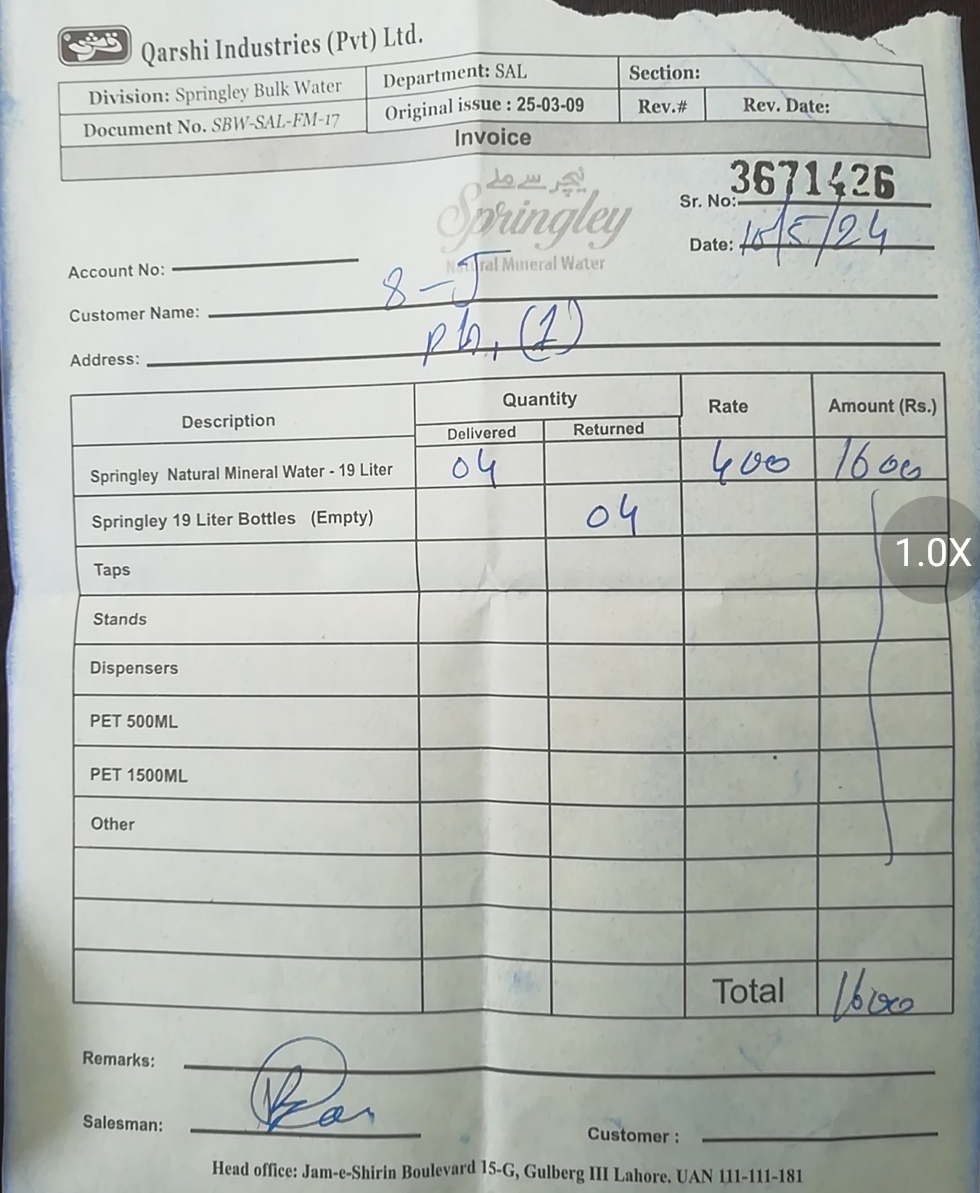 قرشی
Qarshi Industries (Pvt) Ltd.
Division: Springley Bulk Water
Department: SAL
Section:
Document No. SBW-SAL-FM-17
Original issue : 25-03-09
Rev.#
Rev. Date:
Invoice
نیچر سے ملے
Springley
Natural Mineral Water
Sr. No: 3671426
Date: 10/5/24
Account No:
Customer Name: 8-J
Address: ph, (1)
Description Quantity Rate Amount (Rs.)
Delivered Returned
Springley Natural Mineral Water - 19 Liter 04 400 1600
Springley 19 Liter Bottles (Empty) 04
Taps
Stands
Dispensers
PET 500ML
PET 1500ML
Other
Total 1600
Remarks:
Salesman:
Customer :
Head office: Jam-e-Shirin Boulevard 15-G, Gulberg III Lahore. UAN 111-111-181
1.0X